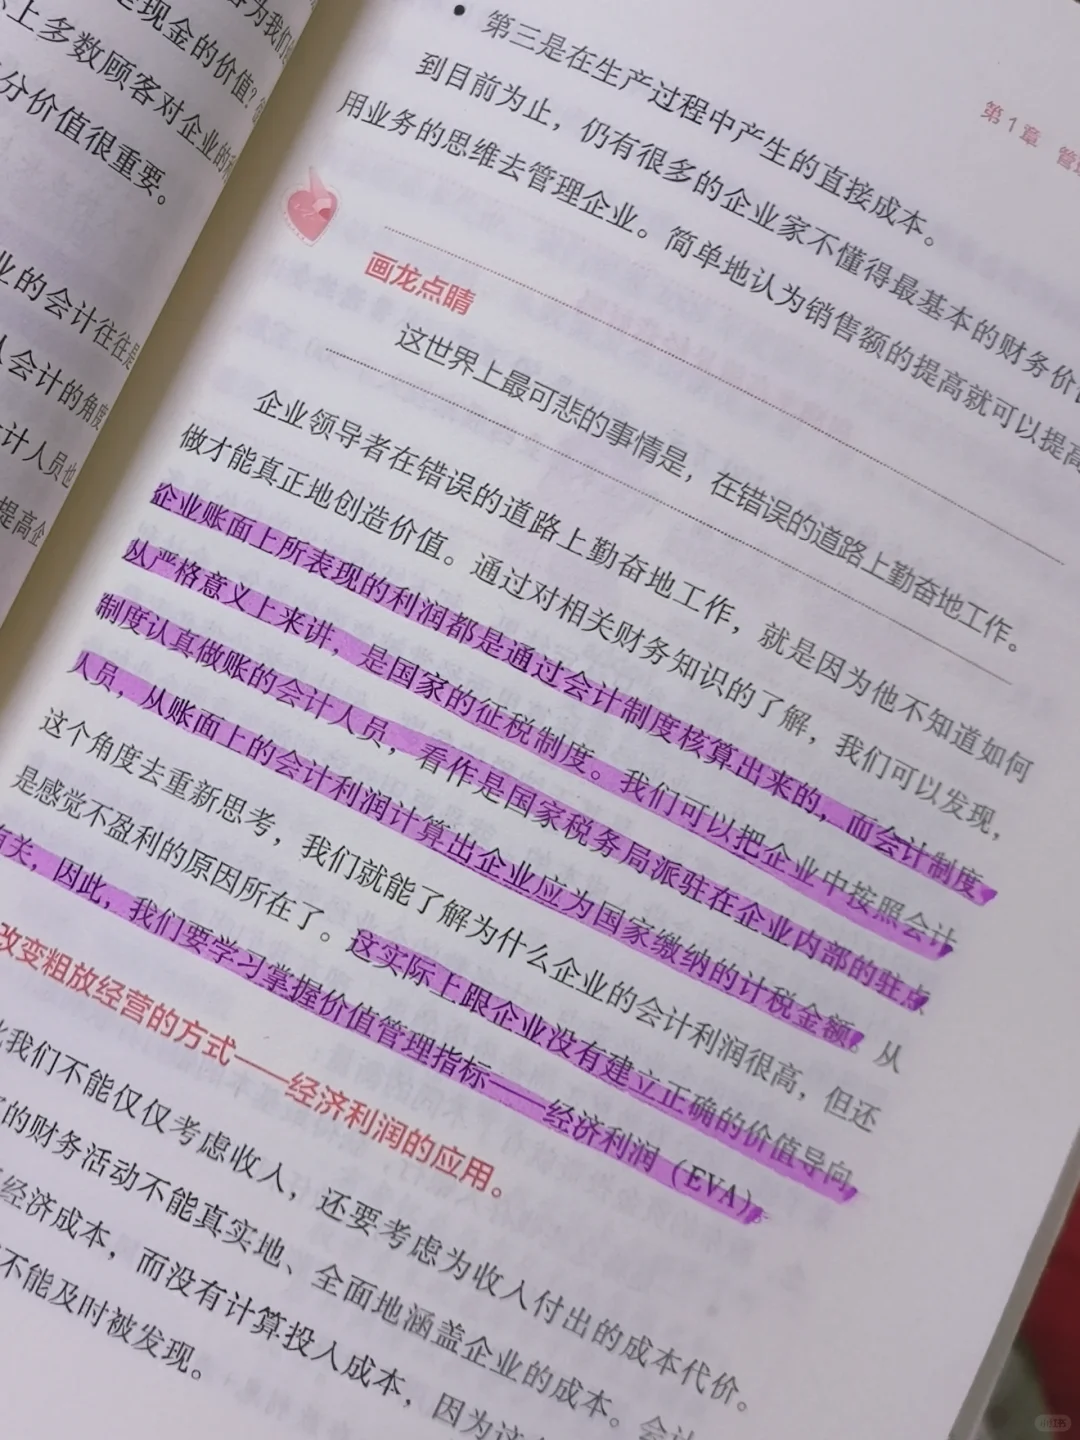 为我们
现金的价值？
上多数顾客对企业的
分价值很重要。
业的会计往往是
人会计的角度
计人员也
提高企
第1章
• 第三是在生产过程中产生的直接成本。
到目前为止，仍有很多的企业家不懂得最基本的财务价
用业务的思维去管理企业。简单地认为销售额的提高就可以提高
画龙点睛
这世界上最可悲的事情是，在错误的道路上勤奋地工作。
企业领导者在错误的道路上勤奋地工作，就是因为他不知道如何
做才能真正地创造价值。通过对相关财务知识的了解，我们可以发现，
企业账面上所表现的利润都是通过会计制度核算出来的，而会计制度，
从严格意义上来讲，是国家的征税制度。我们可以把企业中按照会计
制度认真做账的会计人员，看作是国家税务局派驻在企业内部的驻点
人员，从账面上的会计利润计算出企业应为国家缴纳的计税金额。从
这个角度去重新思考，我们就能了解为什么企业的会计利润很高，但还
是感觉不盈利的原因所在了。这实际上跟企业没有建立正确的价值导向
有关，因此，我们要学习掌握价值管理指标——经济利润（EVA）。
改变粗放经营的方式——经济利润的应用。
我们不能仅仅考虑收入，还要考虑为收入付出的成本代价。
的财务活动不能真实地、全面地涵盖企业的成本。会计
经济成本，而没有计算投入成本，因为这
不能及时被发现。
小红书